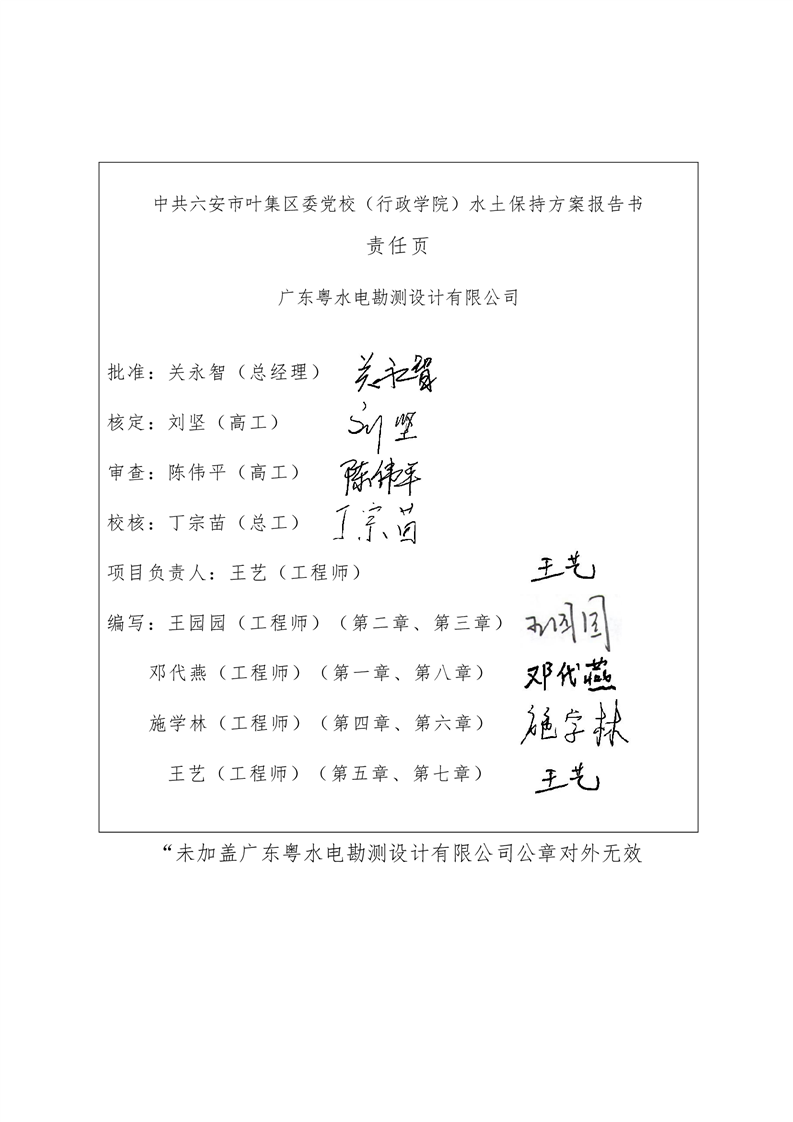 中共六安市叶集区委党校（行政学院）水土保持方案报告书
责任页
广东粤水电勘测设计有限公司
批准：关永智（总经理） 关永智
核定：刘坚（高工） 刘坚
审查：陈伟平（高工） 陈伟平
校核：丁宗苗（总工） 丁宗苗
项目负责人：王艺（工程师） 王艺
编写：王园园（工程师）（第二章、第三章） 王园园
邓代燕（工程师）（第一章、第八章） 邓代燕
施学林（工程师）（第四章、第六章） 施学林
王艺（工程师）（第五章、第七章） 王艺
“未加盖广东粤水电勘测设计有限公司公章对外无效